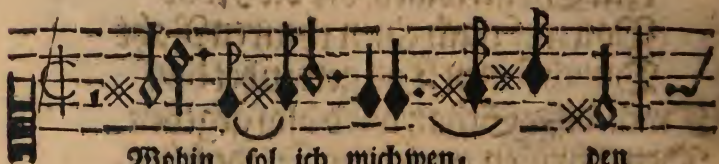 Wohin sol ich mich wen- den